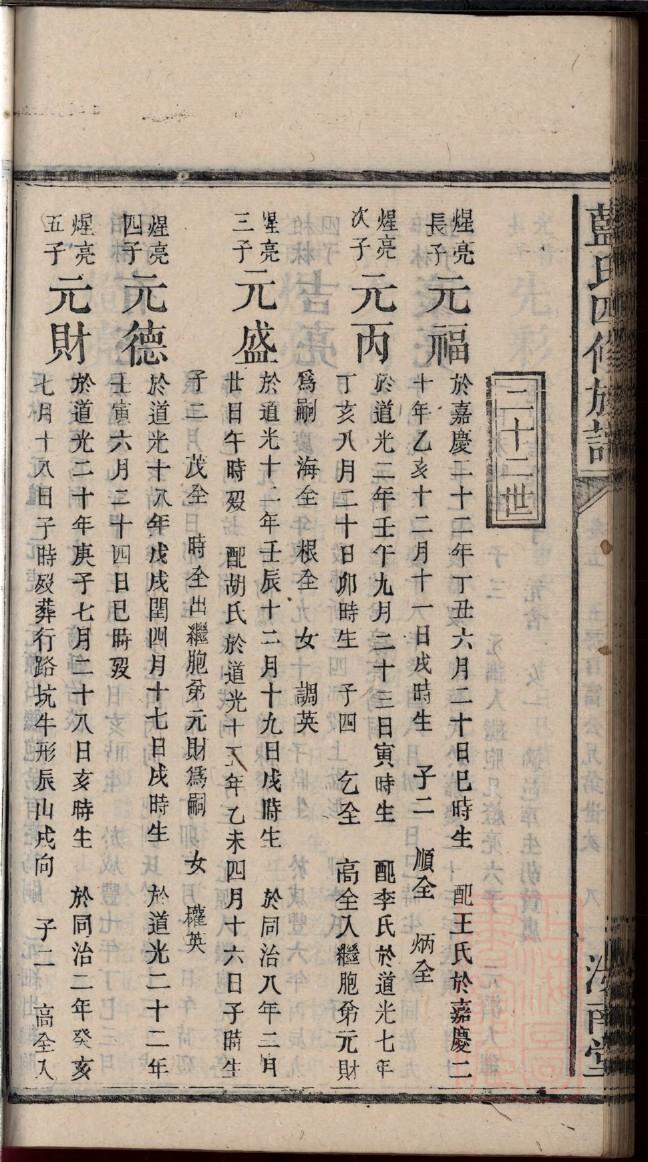 藍氏四修族譜
汝南堂
二十二世
煋亮長子 元福 於嘉慶二十二年丁丑六月二十日巳時生 配王氏於嘉慶二
十年乙亥十二月十一日戌時生 子二 順全 炳全
煋亮次子 元丙 於道光二年壬午九月二十三日寅時生 配李氏於道光七年
丁亥八月二十日卯時生 子四 乞全 高全入繼胞弟元財
爲嗣 海全 根全 女 調英
煋亮三子 元盛 於道光十二年壬辰十二月十九日戌時生 於同治八年二月
廿日午時歿 配胡氏於道光十五年乙未四月十六日子時生
子二 茂全 時全出繼胞弟元財爲嗣 女 權英
煋亮四子 元德 於道光十八年戊戌閏四月十七日戌時生 於道光二十二年
壬寅六月二十四日巳時歿
煋亮五子 元財 於道光二十年庚子七月二十八日亥時生 於同治二年癸亥
七月十八日子時歿葬行路坑牛形辰山戌向 子二 高全入